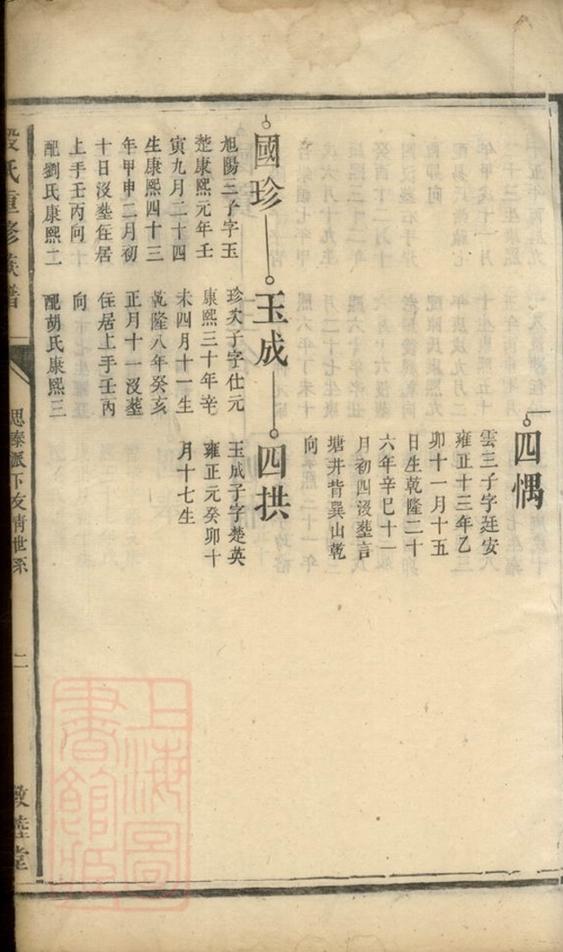 四偶
雲三子字廷安
雍正十三年乙
卯十一月十五
日生乾隆二十
六年辛巳十一
月初四沒塟言
塘井背巽山乾
向
國珍
旭陽三子字玉
楚康熙元年壬
寅九月二十四
生康熙四十三
年甲申二月初
十日沒塟住居
上手壬丙向
配劉氏康熙二
玉成
珍次子字仕元
康熙三十年辛
未四月十一生
乾隆八年癸亥
正月十一沒塟
住居上手壬丙
向
配胡氏康熙三
四拱
玉成子字楚英
雍正元癸卯十
月十七生
氏重修族譜
思泰派下友情世系
二
敦睦堂
上海圖書館藏